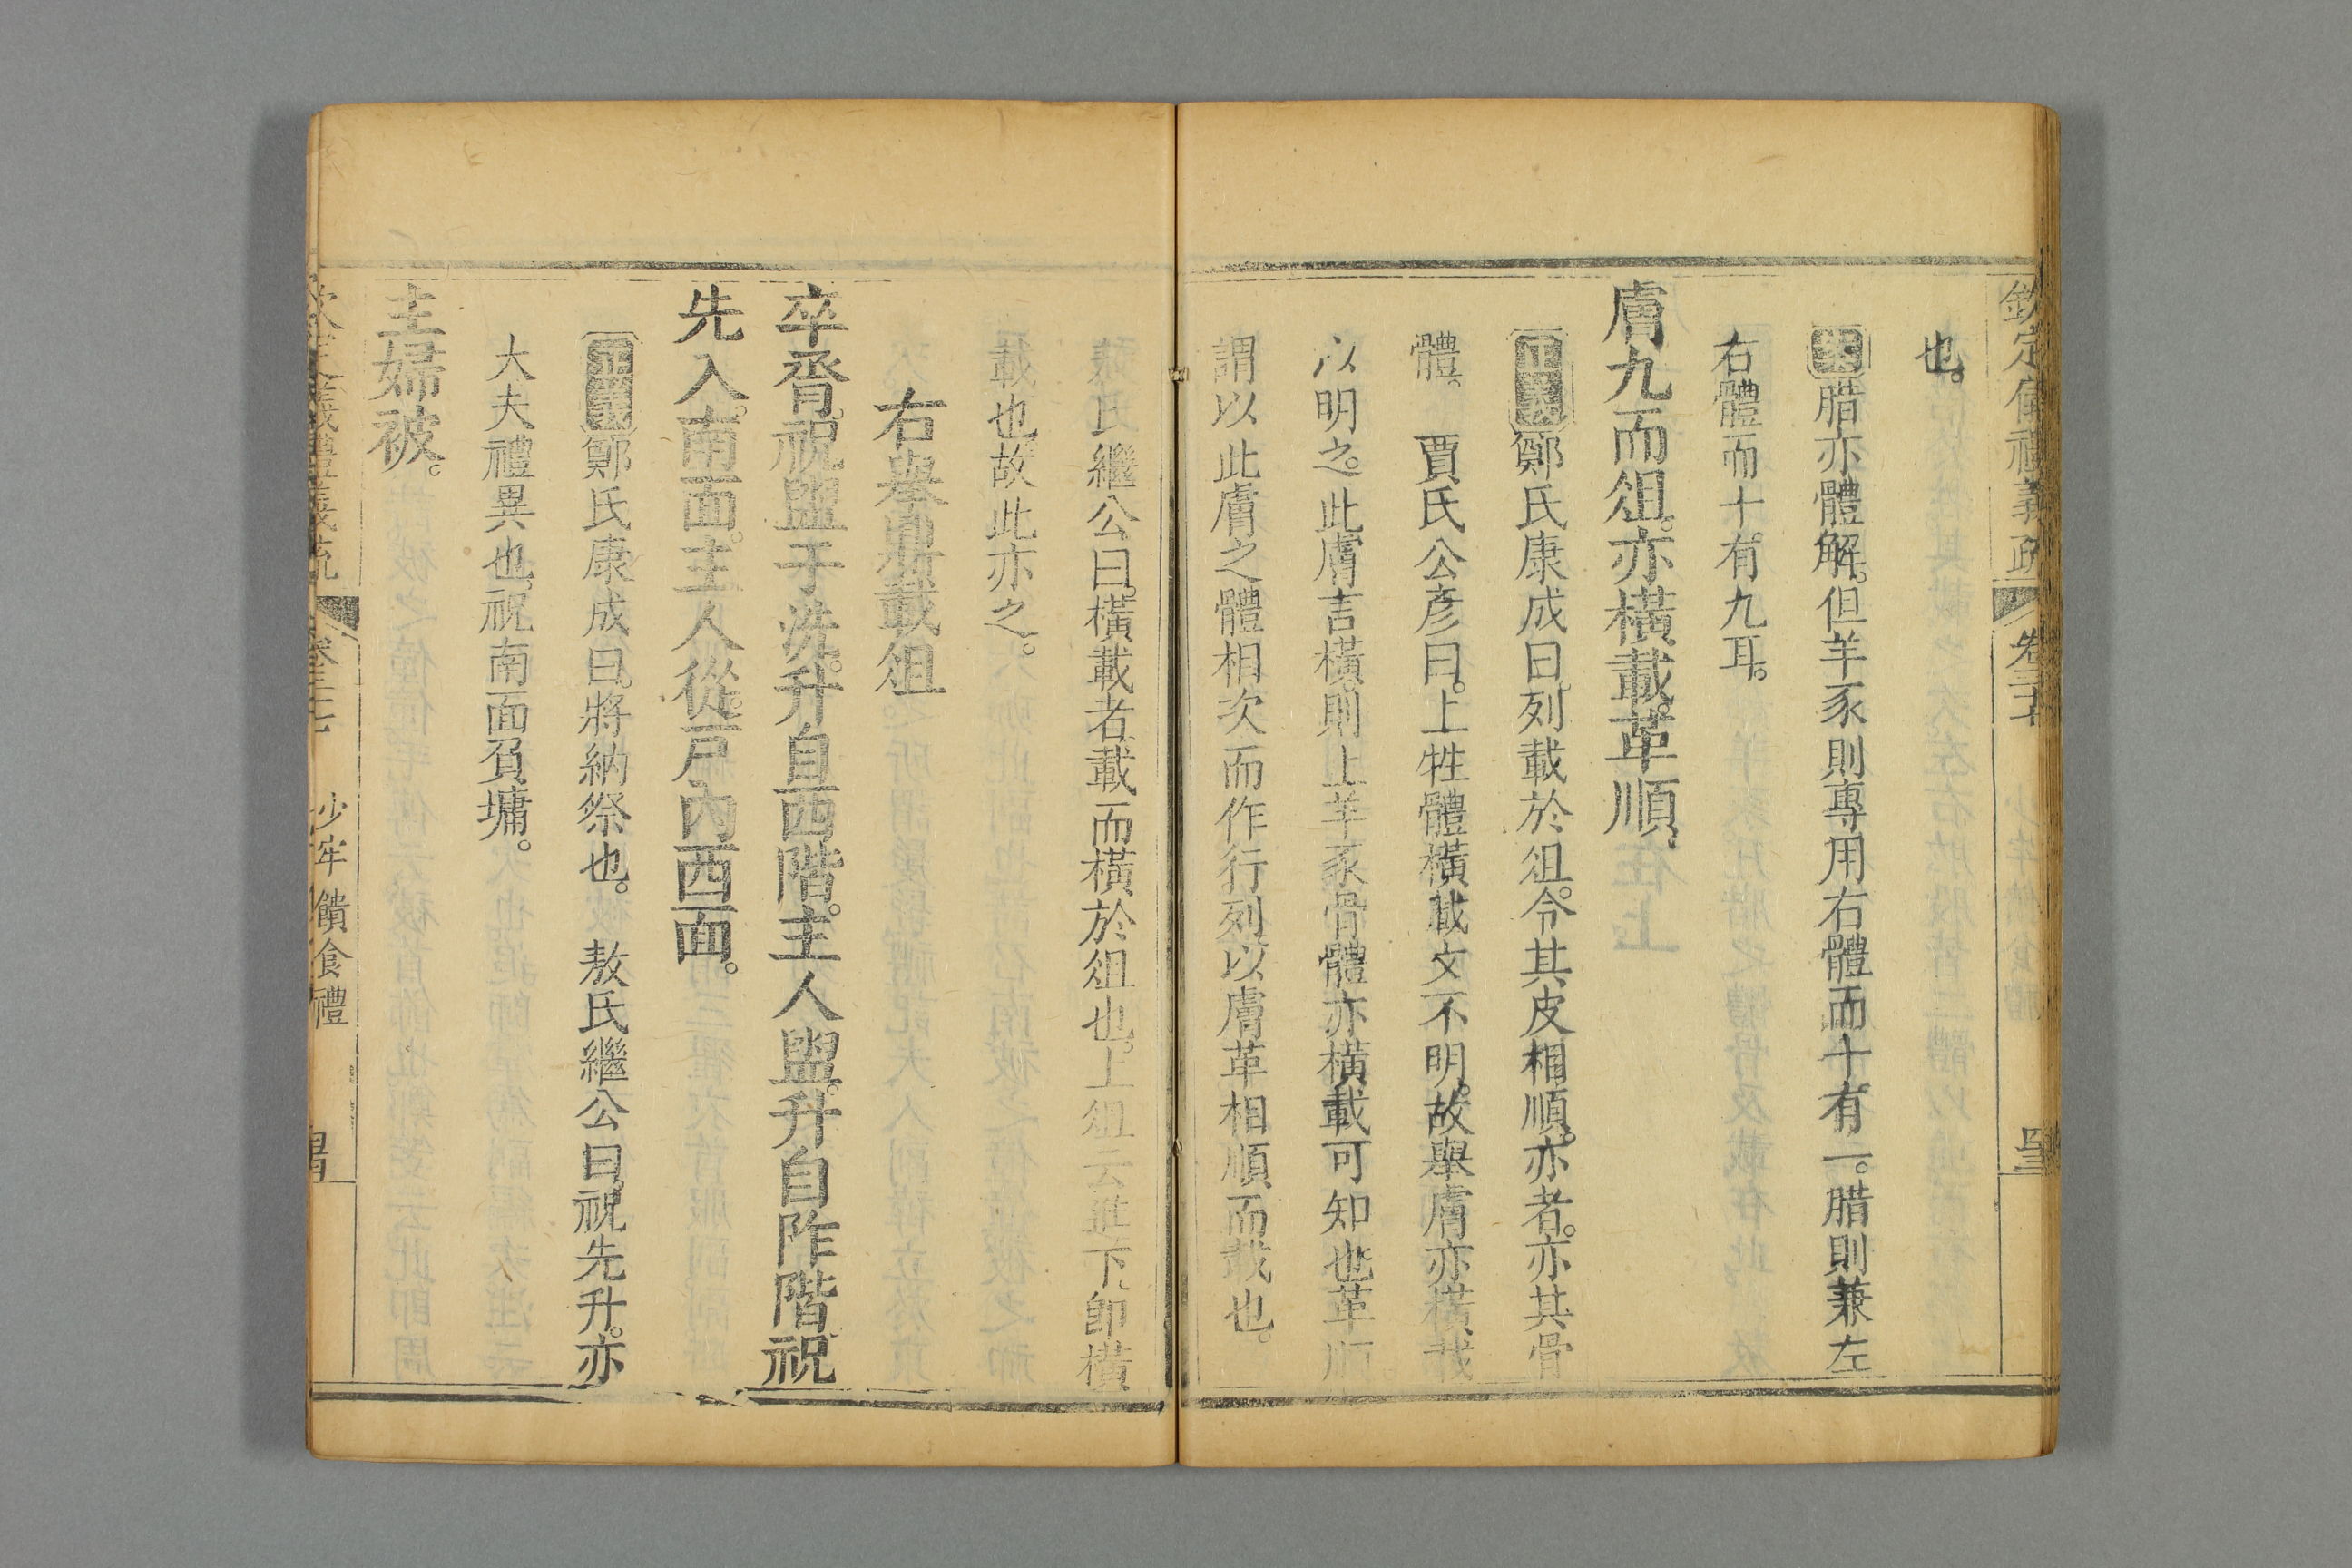 欽定儀禮義疏 卷三十七
也。
案腊亦體解。但羊豕則專用右體而十有一。腊則兼左
右體而十有九耳。
膚九而俎。亦橫載。革順。
正義鄭氏康成曰。列載於俎。令其皮相順。亦者。亦其骨
體。 賈氏公彥曰。上牲體橫載文不明。故舉膚亦橫載
以明之。此膚言橫。則上羊豕骨體亦橫載可知也。革順
謂以此膚之體相次而作行列以膚革相順而載也。
敖氏繼公曰。橫載者。載而橫於俎也。上俎云進下。卽橫
載也。故此亦之。
右舉鼎載俎
卒脀。祝盥于洗。升自西階。主人盥。升自阼階。祝
先入。南面。主人從。戶內西面。
正義鄭氏康成曰。將納祭也。 敖氏繼公曰。祝先升。亦
大夫禮異也。祝南面負墉。
主婦被。
欽定儀禮義疏 卷三十七 少牢饋食禮